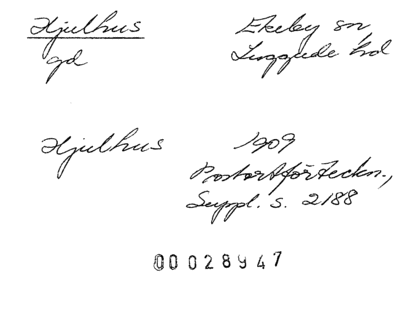 Hjulhus Ekeby sn
gd Luggude hd
Hjulhus 1909
Postortförteckn.,
Suppl. s. 2188
00028947